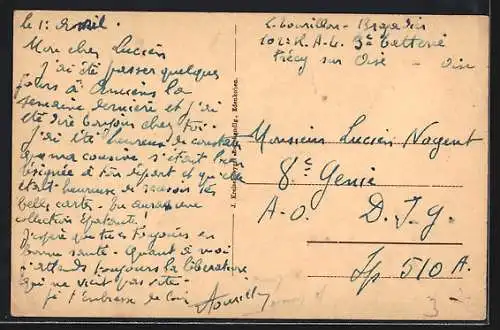 le 1er Avril.
Mon cher Lucien
J'ai été passer quelques
jours à Amiens la
semaine dernière et j'ai
été dire bonjour chez toi.
J'ai été heureux de constater
que ma cousine s'était bien
depuis ton départ et qu'elle
était heureuse de recevoir tes
belles cartes. aura une
collection épatante!
J'espère que tu es toujours en
bonne santé. Quant à moi
j'attends toujours la libération
qui ne vient pas vite.
je t'embrasse de
Brigadier
102e R.A.L. 3e batterie
Précy sur Oise - Oise
Monsieur Lucien Nogent
8e Génie
A-O. D.T.G.
Sp 510 A.